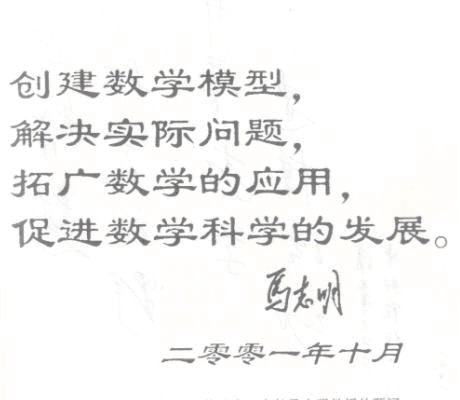 创建数学模型，
解决实际问题，
拓广数学的应用，
促进数学科学的发展。
马志明
二零零一年十月